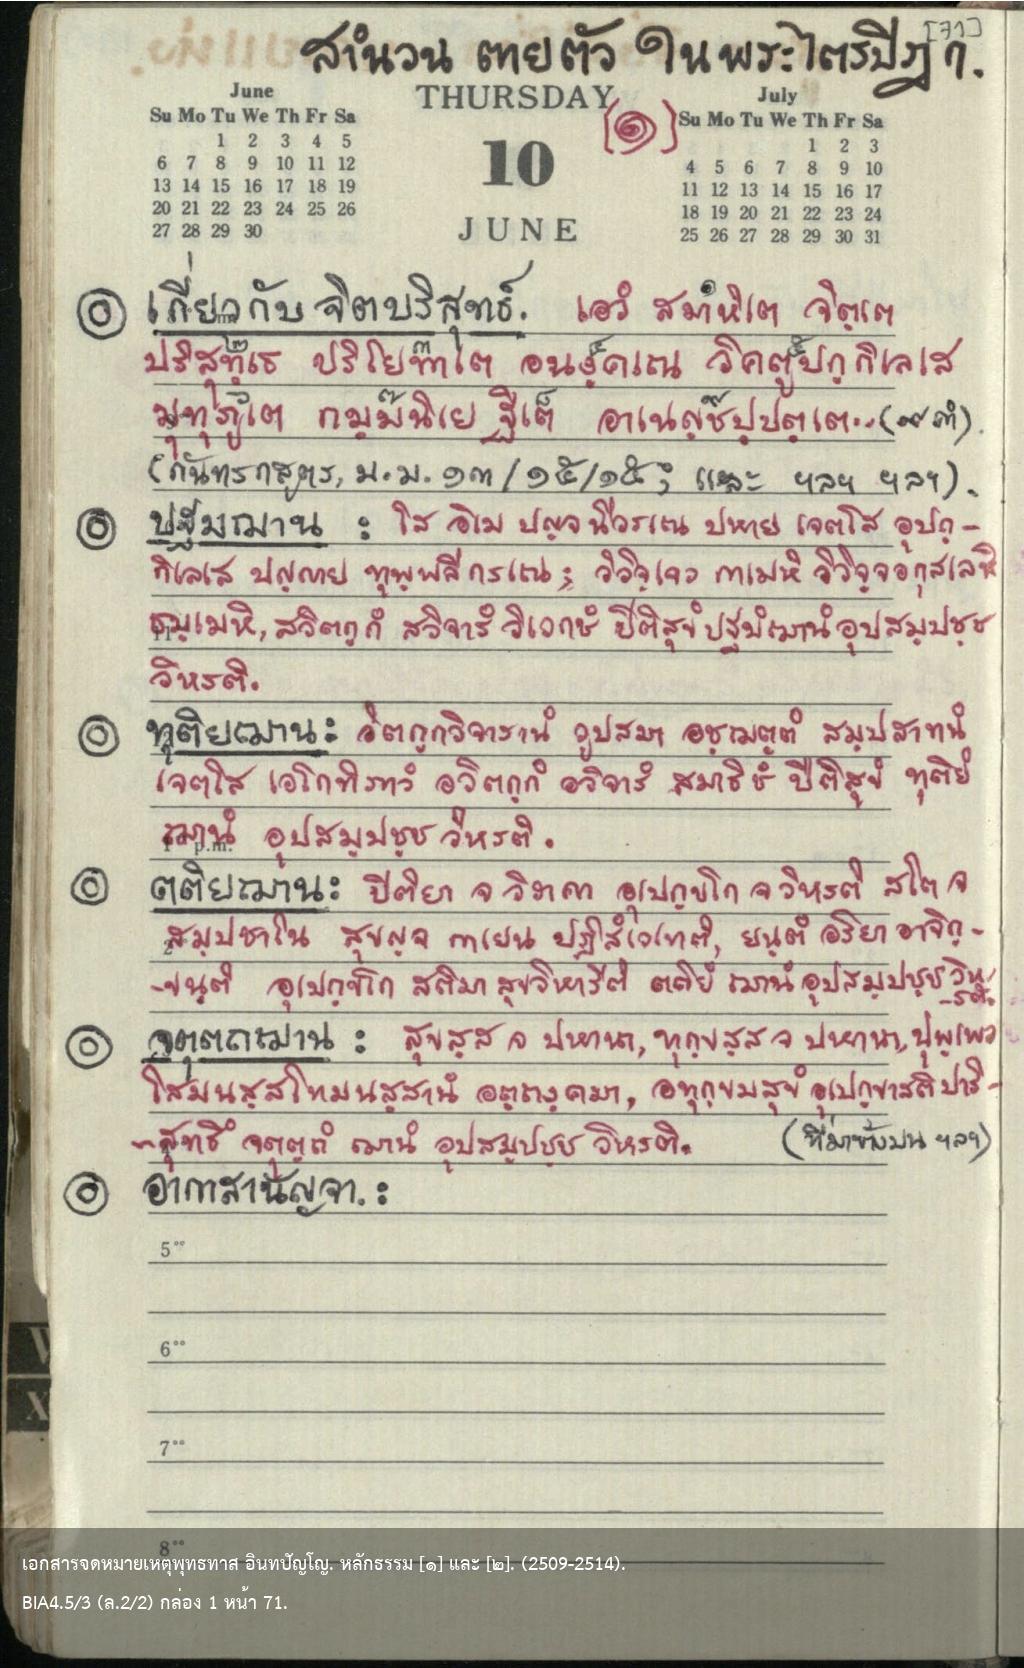 [71]
สำนวน ตายตัว ในพระไตรปิฎก.
June
Su Mo Tu We Th Fr Sa
1 2 3 4 5
6 7 8 9 10 11 12
13 14 15 16 17 18 19
20 21 22 23 24 25 26
27 28 29 30
THURSDAY
10
JUNE
[๑]
July
Su Mo Tu We Th Fr Sa
1 2 3
4 5 6 7 8 9 10
11 12 13 14 15 16 17
18 19 20 21 22 23 24
25 26 27 28 29 30 31
เกี่ยวกับ จิตบริสุทธ์. เอวํ สมาหิเต จิตฺเต
ปริสุทฺเธ ปริโยทาเต อนงฺคเณ วิคตูปกฺกิเลเส
มุทุภูเต กมฺมนิเย ฐิเต อาเนญฺชปฺปตฺเต..(๙ คำ).
(กันทรกสูตร, ม.ม. ๑๓/๑๕/๑๕; และ ฯลฯ ฯลฯ).
ปฐมฌาน : โส อิเม ปญฺจ นีวรเณ ปหาย เจตโส อุปกฺ-
กิเลเส ปญฺญาย ทุพฺพลีกรเณ; วิวิจฺเจว กาเมหิ วิวิจฺจ อกุสเลหิ
ธมฺเมหิ, สวิตกฺกํ สวิจารํ วิเวกชํ ปีติสุขํ ปฐมํ ฌานํ อุปสมฺปชฺช
วิหรติ.
ทุติยฌาน: วิตกฺกวิจารานํ วูปสมา อชฺฌตฺตํ สมฺปสาทนํ
เจตโส เอโกทิภาวํ อวิตกฺกํ อวิจารํ สมาธิชํ ปีติสุขํ ทุติยํ
ฌานํ อุปสมฺปชฺช วิหรติ.
p.m.
ตติยฌาน: ปีติยา จ วิราคา อุเปกฺขโก จ วิหรติ สโต จ
สมฺปชาโน สุขญฺจ กาเยน ปฏิสํเวเทติ, ยนฺตํ อริยา อาจิกฺ-
-ขนฺติ อุเปกฺขโก สติมา สุขวิหารีติ ตติยํ ฌานํ อุปสมฺปชฺช วิห-
-รติ.
จตุตถฌาน : สุขสฺส จ ปหานา, ทุกฺขสฺส จ ปหานา, ปุพฺเพว
โสมนสฺสโทมนสฺสานํ อตฺถงฺคมา, อทุกฺขมสุขํ อุเปกฺขาสติปาริ-
-สุทธึ จตุตฺถํ ฌานํ อุปสมฺปชฺช วิหรติ. (ที่มาข้างบน ฯลฯ)
อากาสานัญจา. :
5°°
6°°
7°°
8°°
เอกสารจดหมายเหตุพุทธทาส อินทปัญโญ. หลักธรรม [๑] และ [๒]. (2509-2514).
BIA4.5/3 (ล.2/2) กล่อง 1 หน้า 71.